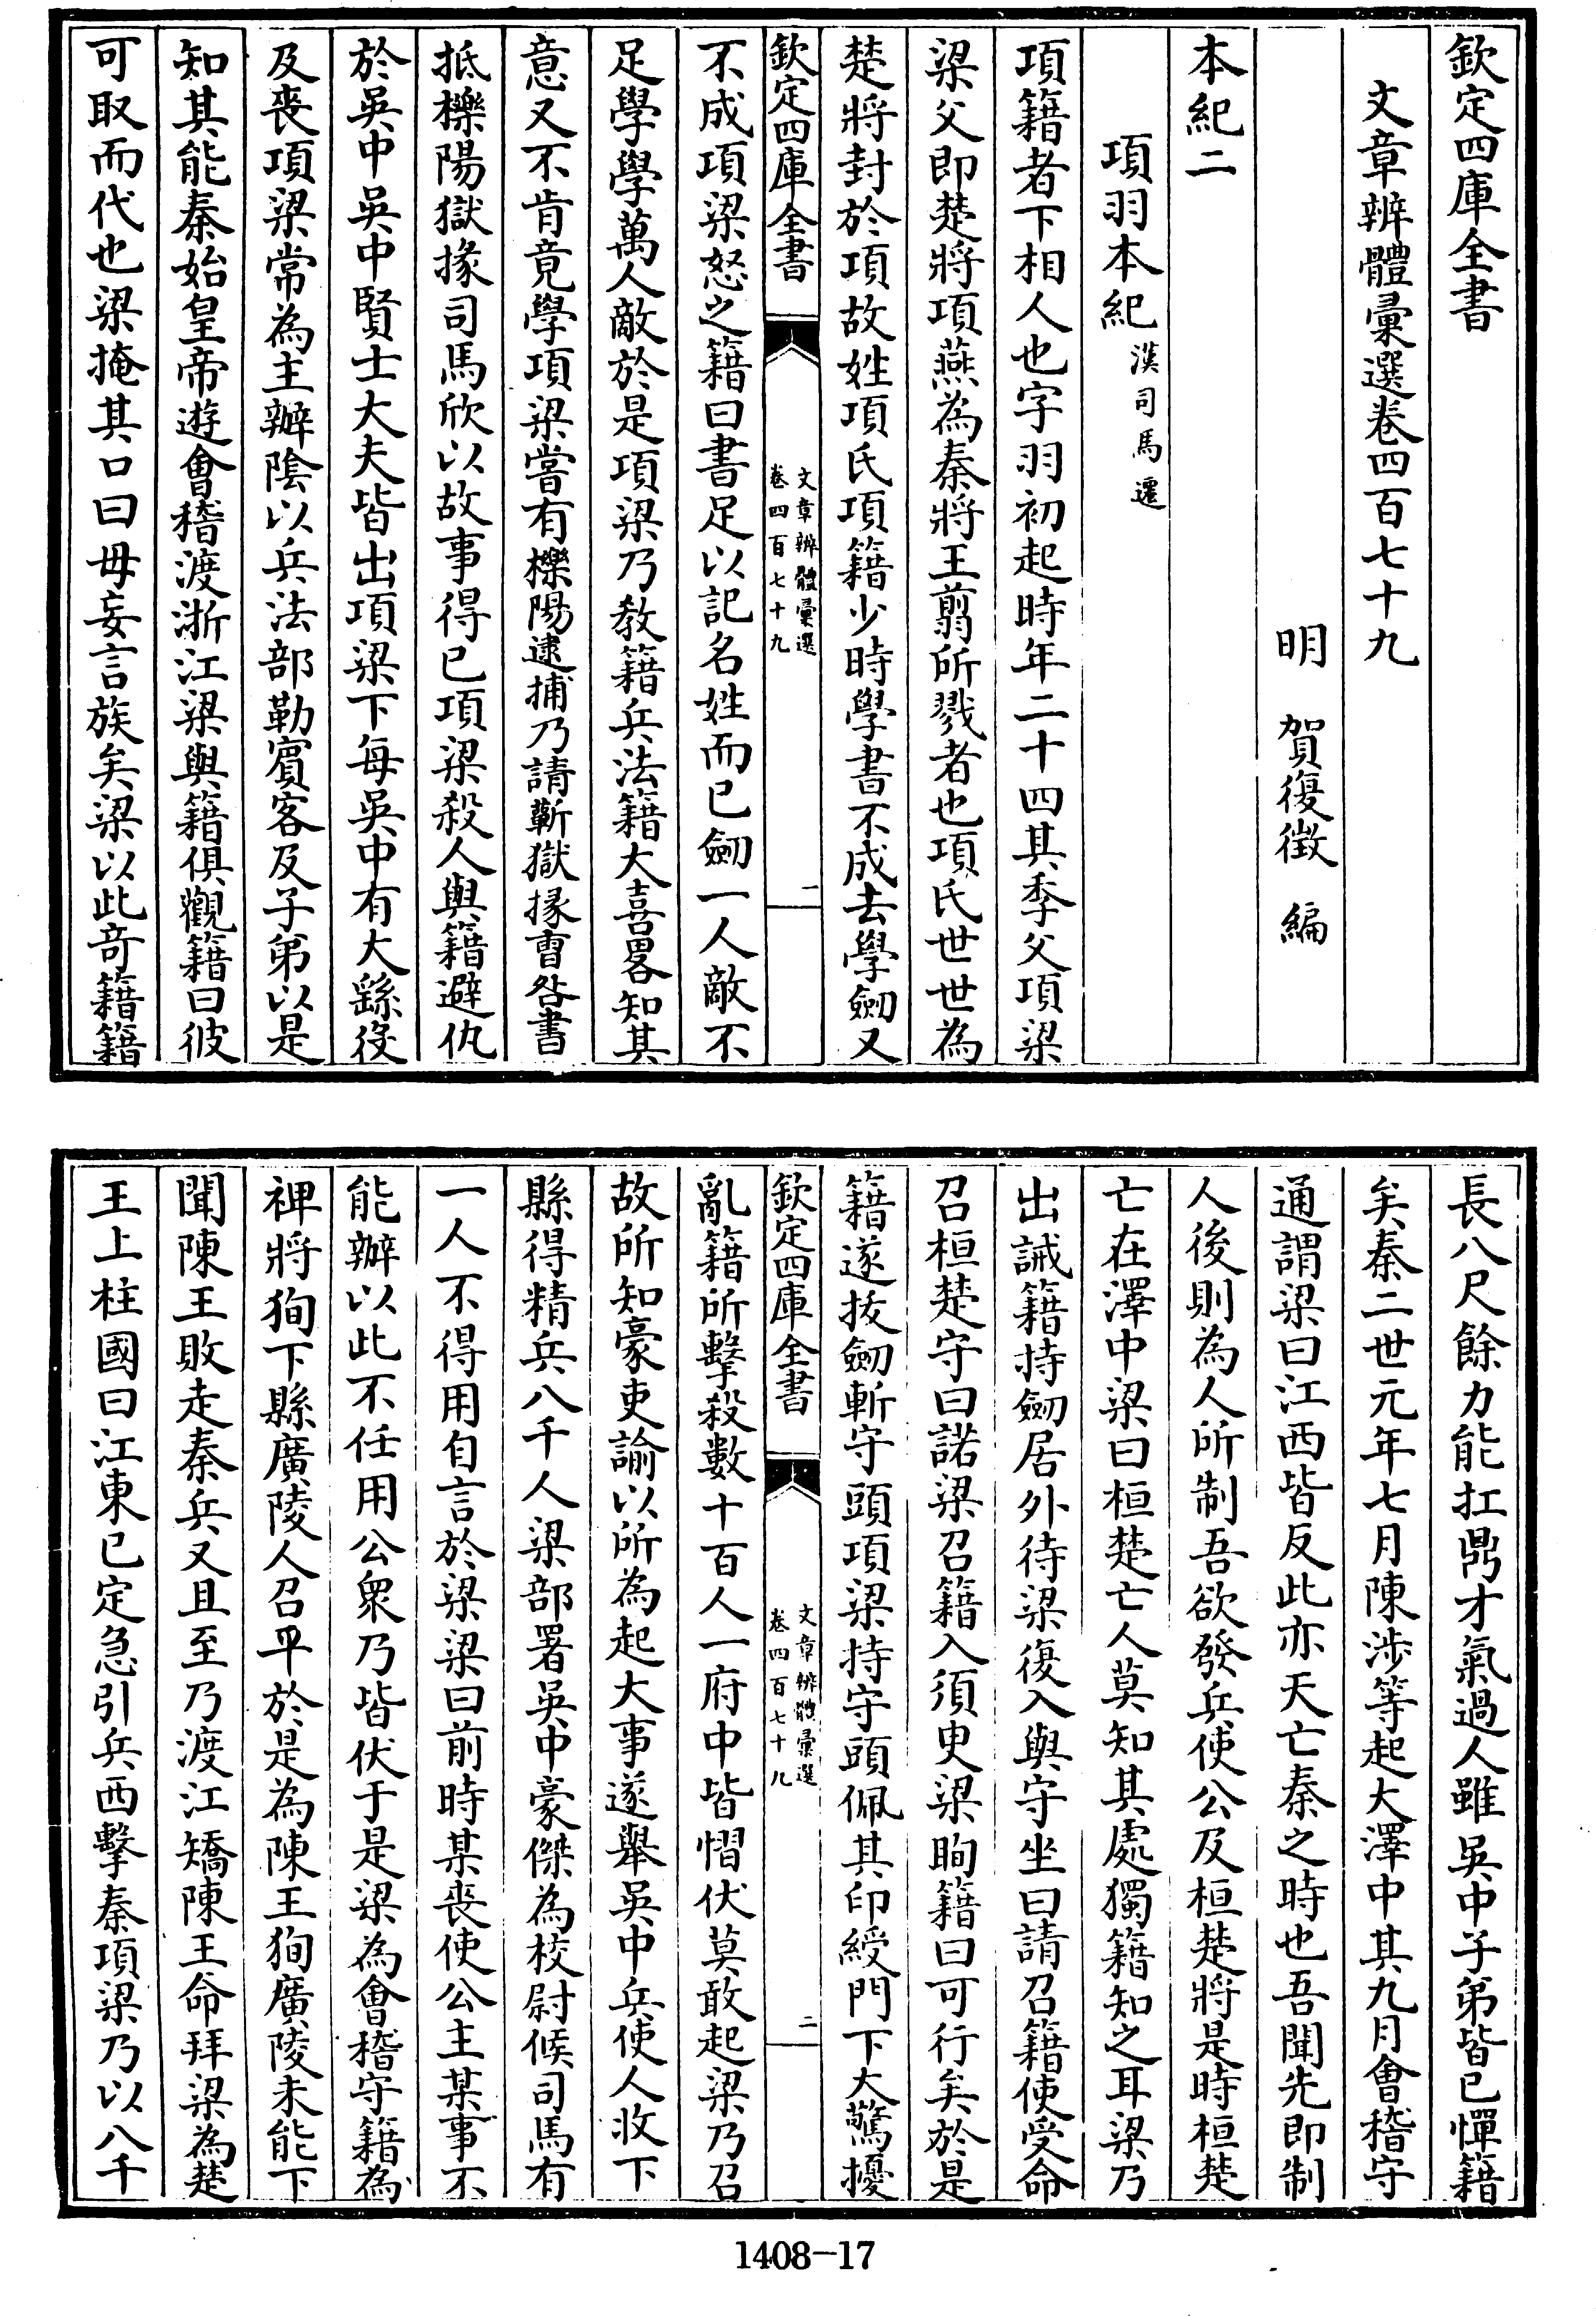 欽定四庫全書
文章辨體彙選卷四百七十九
明 賀復徵 編
本紀二
項羽本紀 漢司馬遷
項籍者下相人也字羽初起時年二十四其季父項梁
梁父即楚將項燕為秦將王翦所戮者也項氏世世為
楚將封於項故姓項氏項籍少時學書不成去學劒又
欽定四庫全書
文章辨體彙選
卷四百七十九
一
不成項梁怒之籍曰書足以記名姓而已劒一人敵不
足學學萬人敵於是項梁乃教籍兵法籍大喜畧知其
意又不肯竟學項梁嘗有櫟陽逮捕乃請蘄獄掾曹咎書
抵櫟陽獄掾司馬欣以故事得已項梁殺人與籍避仇
於吳中吳中賢士大夫皆出項梁下每吳中有大繇役
及喪項梁常為主辦陰以兵法部勒賔客及子弟以是
知其能秦始皇帝遊會稽渡浙江梁與籍俱觀籍曰彼
可取而代也梁掩其口曰毋妄言族矣梁以此奇籍籍
長八尺餘力能扛鼎才氣過人雖吳中子弟皆已憚籍
矣秦二世元年七月陳涉等起大澤中其九月會稽守
通謂梁曰江西皆反此亦天亡秦之時也吾聞先即制
人後則為人所制吾欲發兵使公及桓楚將是時桓楚
亡在澤中梁曰桓楚亡人莫知其處獨籍知之耳梁乃
出誡籍持劒居外待梁復入與守坐曰請召籍使受命
召桓楚守曰諾梁召籍入須臾梁眴籍曰可行矣於是
籍遂拔劒斬守頭項梁持守頭佩其印綬門下大驚擾
欽定四庫全書
文章辨體彙選
卷四百七十九
二
亂籍所擊殺數十百人一府中皆慴伏莫敢起梁乃召
故所知豪吏諭以所為起大事遂舉吳中兵使人收下
縣得精兵八千人梁部署吳中豪傑為校尉候司馬有
一人不得用自言於梁梁曰前時某喪使公主某事不
能辦以此不任用公衆乃皆伏于是梁為會稽守籍為
裨將狥下縣廣陵人召平於是為陳王狥廣陵未能下
聞陳王敗走秦兵又且至乃渡江矯陳王命拜梁為楚
王上柱國曰江東已定急引兵西擊秦項梁乃以八千
1408—17